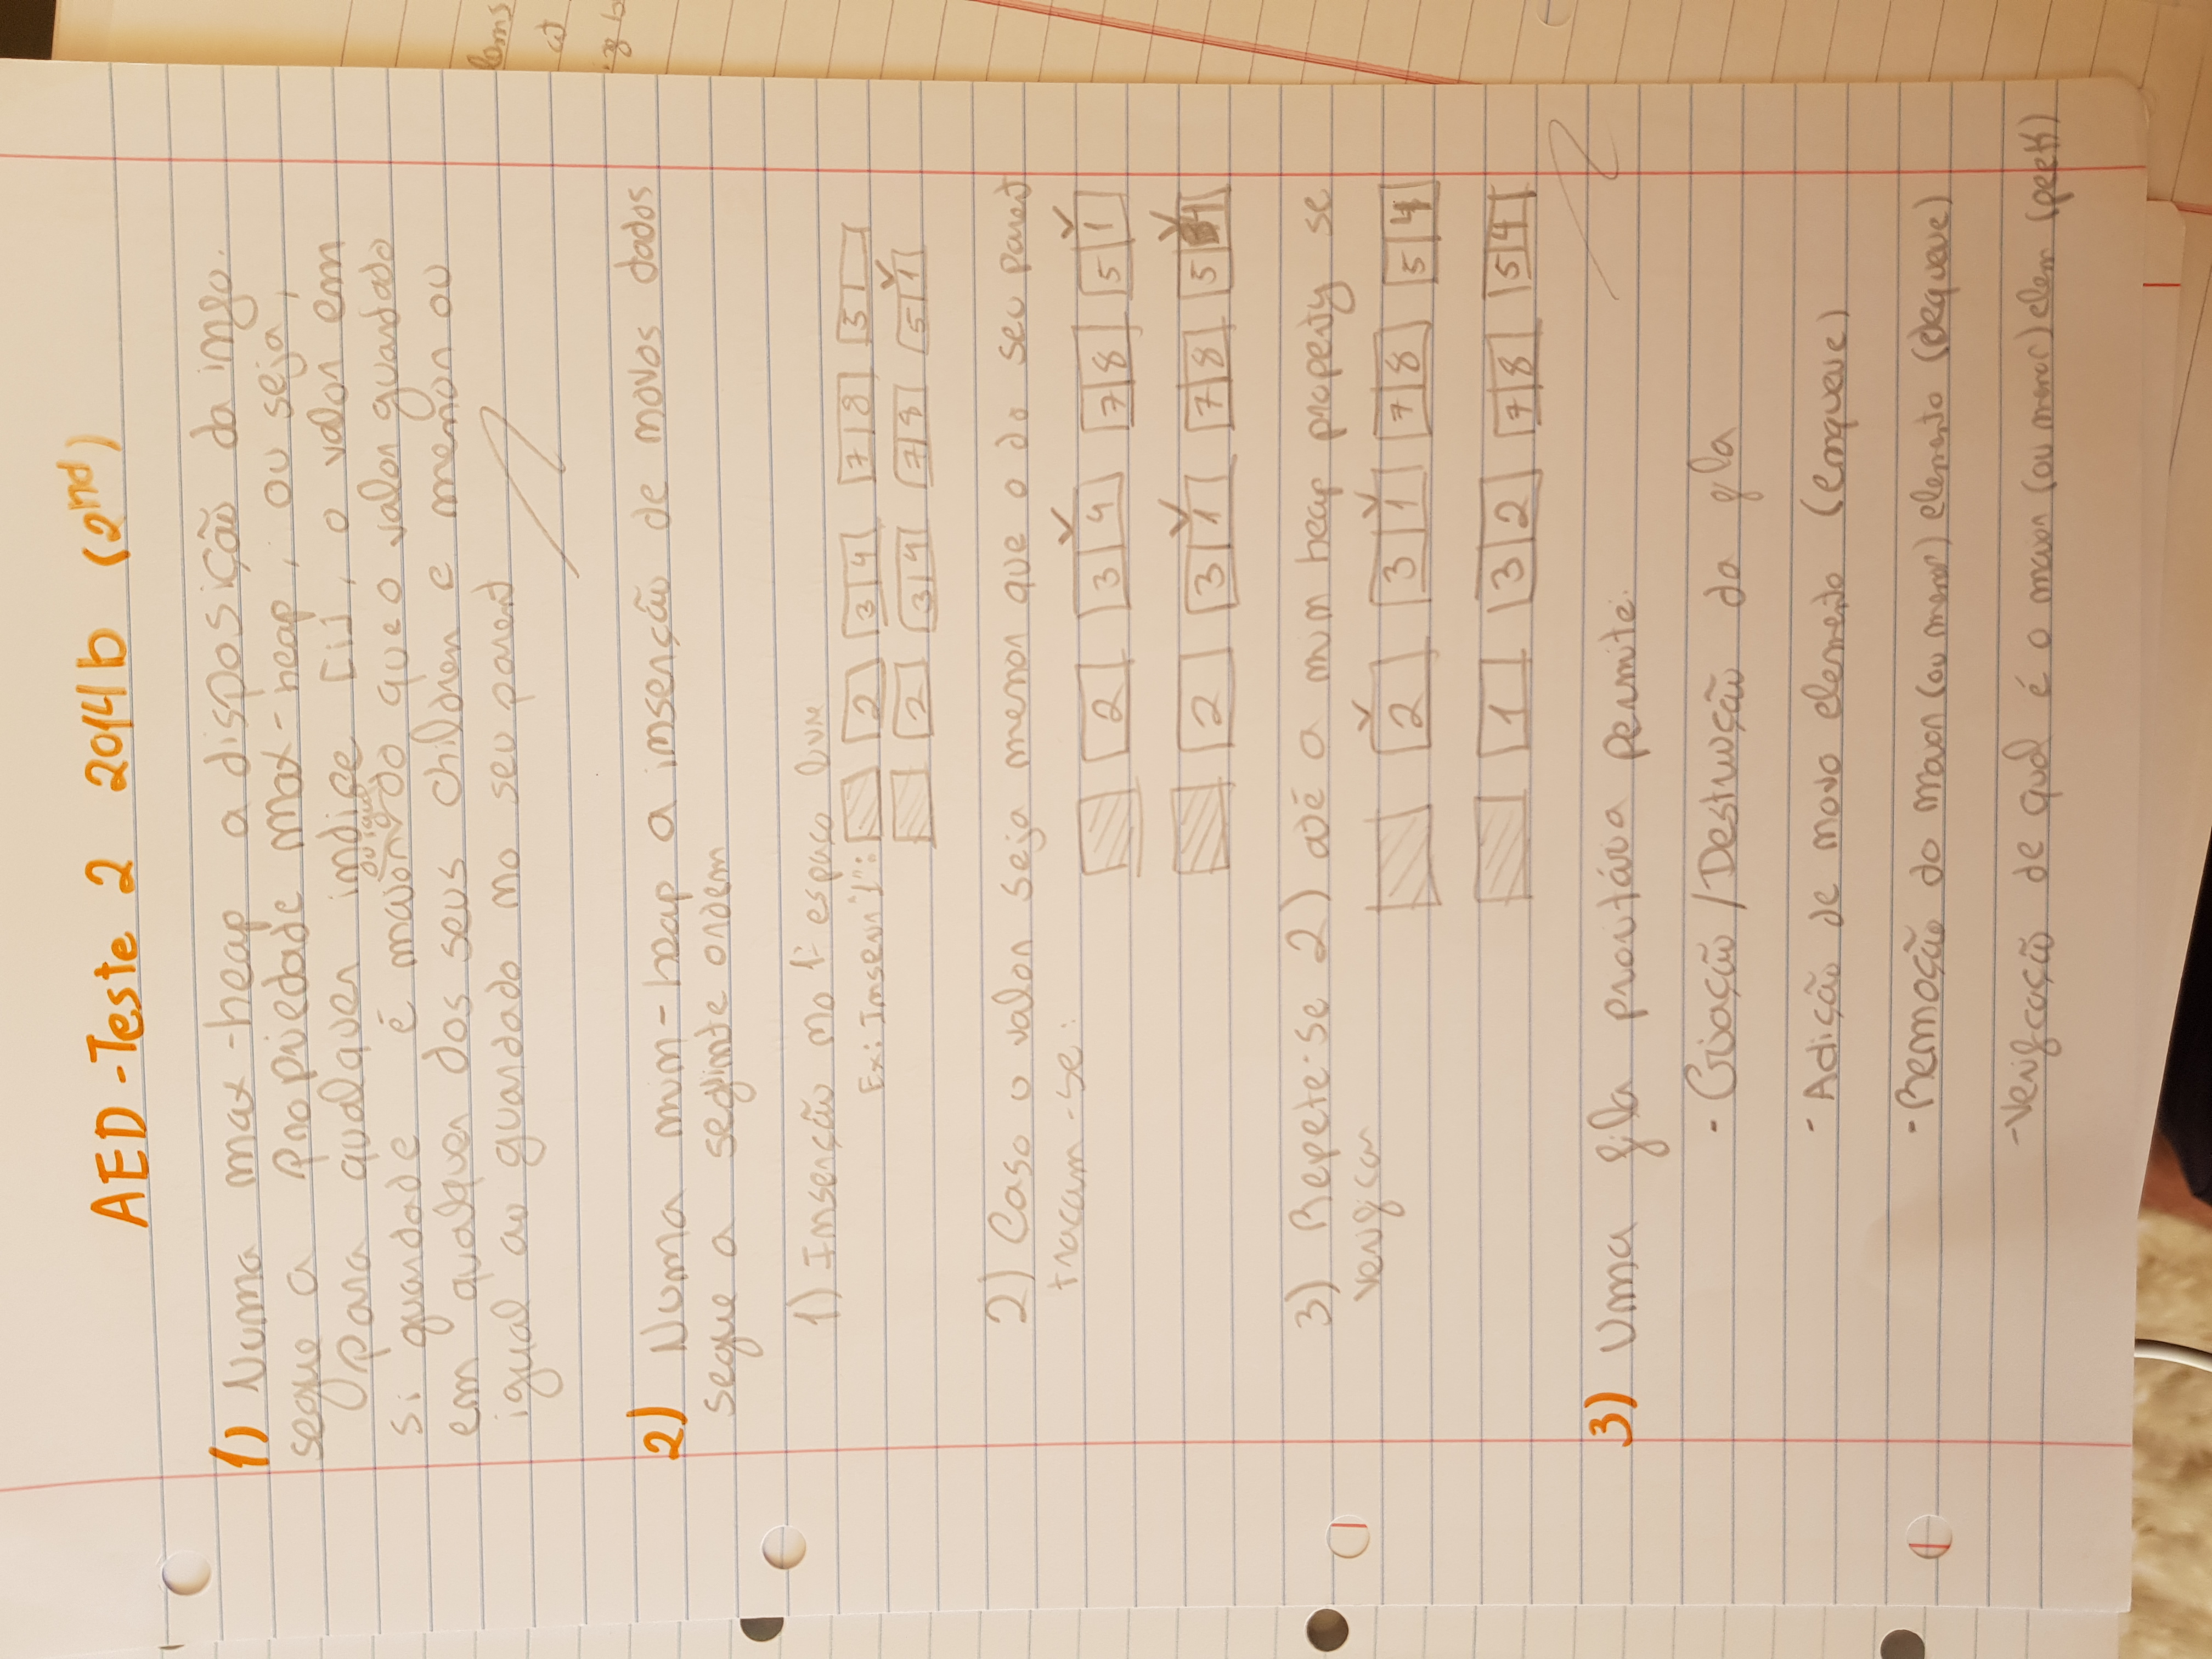 AED - Teste 2 2014b (2nd)
1) Numa max-heap a disposição da info.
segue a propriedade max-heap, ou seja,
para qualquer indice [i], o valor em
ou igual
si guardade é maior do que o valor guardado
em qualquer dos seus children e menor ou
igual ao guardado no seu parent
2) Numa min-heap a inserção de novos dados
segue a seguinte ordem
1) Inserção no 1º espaço livre
Ex: Inserir "1": 2 3 4 7 8 5
2 3 4 7 8 5 1
2) Caso o valor seja menor que o do seu parent
trocam-se:
2 3 4 7 8 5 1
2 3 1 7 8 5 4
3) Repete-se 2) até a min heap property se
verificar
2 3 1 7 8 5 4
1 3 2 7 8 5 4
3) Uma fila prioritária permite:
- Criação / Destruição da fila
- Adição de novo elemento (enqueue)
- Remoção do maior (ou menor) elemento (dequeue)
- Verificação de qual é o maior (ou menor) elem (peek)
lems
at